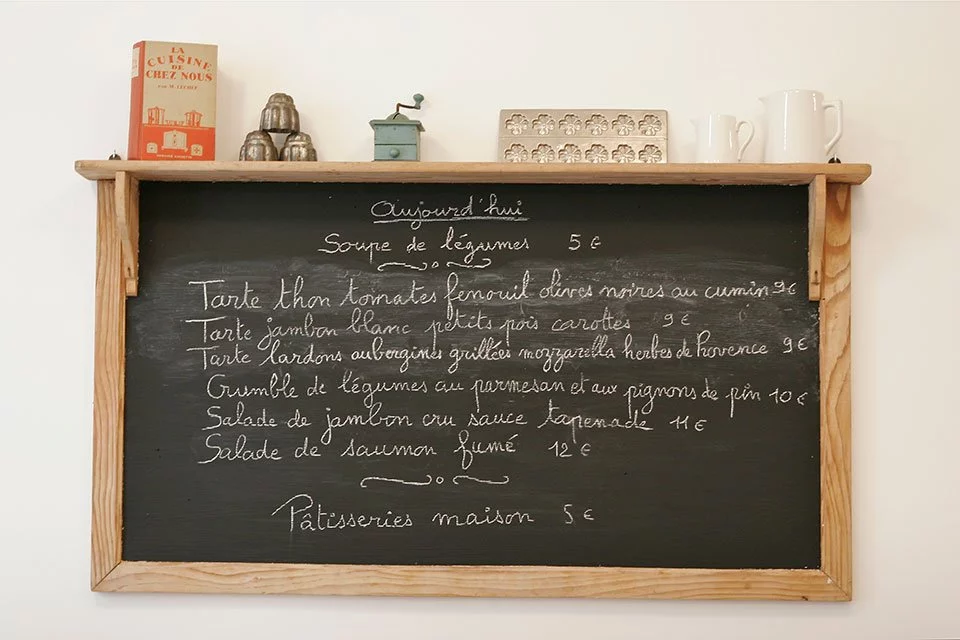 LA
CUISINE
DE
CHEZ NOUS
Aujourd'hui
Soupe de légumes 5 €
Tarte thon tomates fenouil olives noires au cumin 9€
Tarte jambon blanc petits pois carottes 9€
Tarte lardons aubergines grillées mozzarella herbes de Provence 9€
Crumble de légumes au parmesan et aux pignons de pin 10€
Salade de jambon cru sauce tapenade 11€
Salade de saumon fumé 12€
Pâtisseries maison 5€